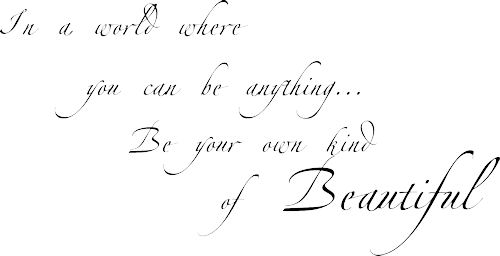 In a world where
you can be anything...
Be your own kind
of Beautiful